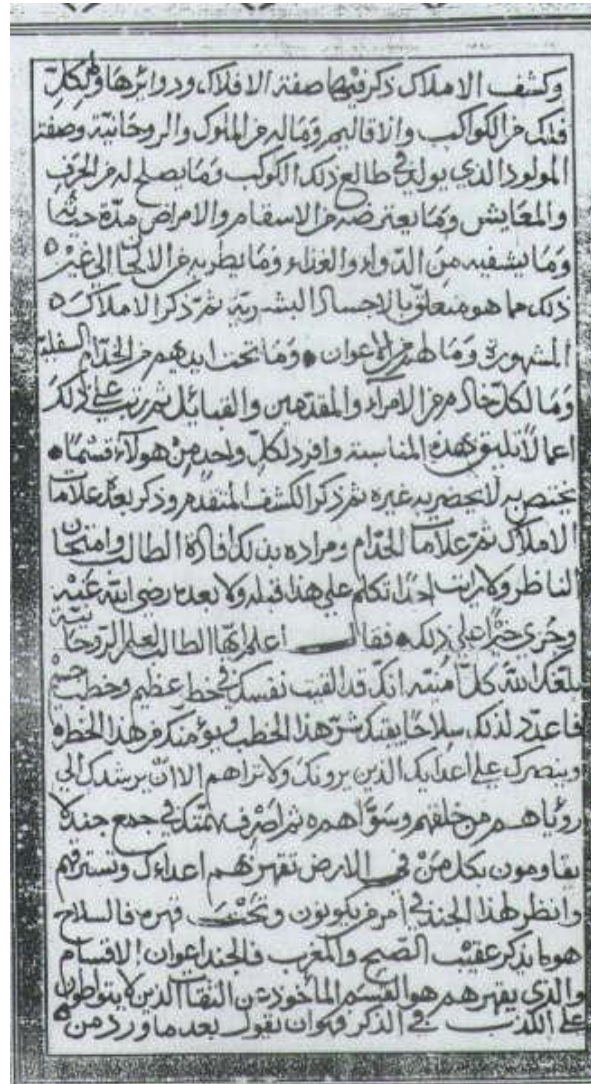 وكشف الاملاك ذكر فيها صفة الافلاك ودوائرها ولكل
فلك من الكواكب والاقاليم وماله من الملوك والروحانية وصفة
المولود الذي يولد في طالع ذلك الكوكب وما يصلح له من الحرف
والمعايش وما يعترضه من الاسقام والامراض مدة حيته
وما يشفيه من الدواء والغذاء وما يطربه من الالحان الي غير
ذلك مما هو متعلق بالاجساد البشرية ثم ذكر الاملاك
المشهورة وما لهم من الاعوان وما تحت ايديهم من الخدام السفلية
وما لكل خادم من الامرآء والمقدمين والقبائل ثم رتب علي ذلك
اعمالا تليق بهذه المناسبة وافرد لكل واحد من هولآء قسما
يختص به لا يحضر به غيره ثم ذكر الكشف المتقدم وذكر بعده علامات
الاملاك ثم علامات الخدام ومراده بذلك افادة الطالب وامتحان
الناظر ولا رايت احدا تكلم علي هذا قبله ولا بعده رضي الله عنه
وجزي خيرا علي ذلك فقال اعلم ايها الطالب لعلم الروحانية
بلغك الله كل امنية انك قد القيت نفسك في خطر عظيم وخطب جسيم
فاعدد لذلك سلاحا يقيك شر هذا الخطب ويؤمنك من هذا الخطر
وينصرك علي اعدايك الذين يرونك ولا تراهم الا ان يرشدك الي
رؤياهم من خلقهم وسواهم ثم اصرف همتك في جمع جند لا
يقاومون بكل من في الارض تقهر بهم اعداءك وتستر بهم
وانظر لهذا الجند في امر من يكونون وتحت قهره فالسلاح
هو ما يذكر عقيب الصبح والمغرب فالجند اعوان الاقسام
والذي يقهرهم هو القسم المأخوذ عن الثقات الذين لا يتواطون
علي الكذب في الذكر فهو ان يقول بعد ما ورد من